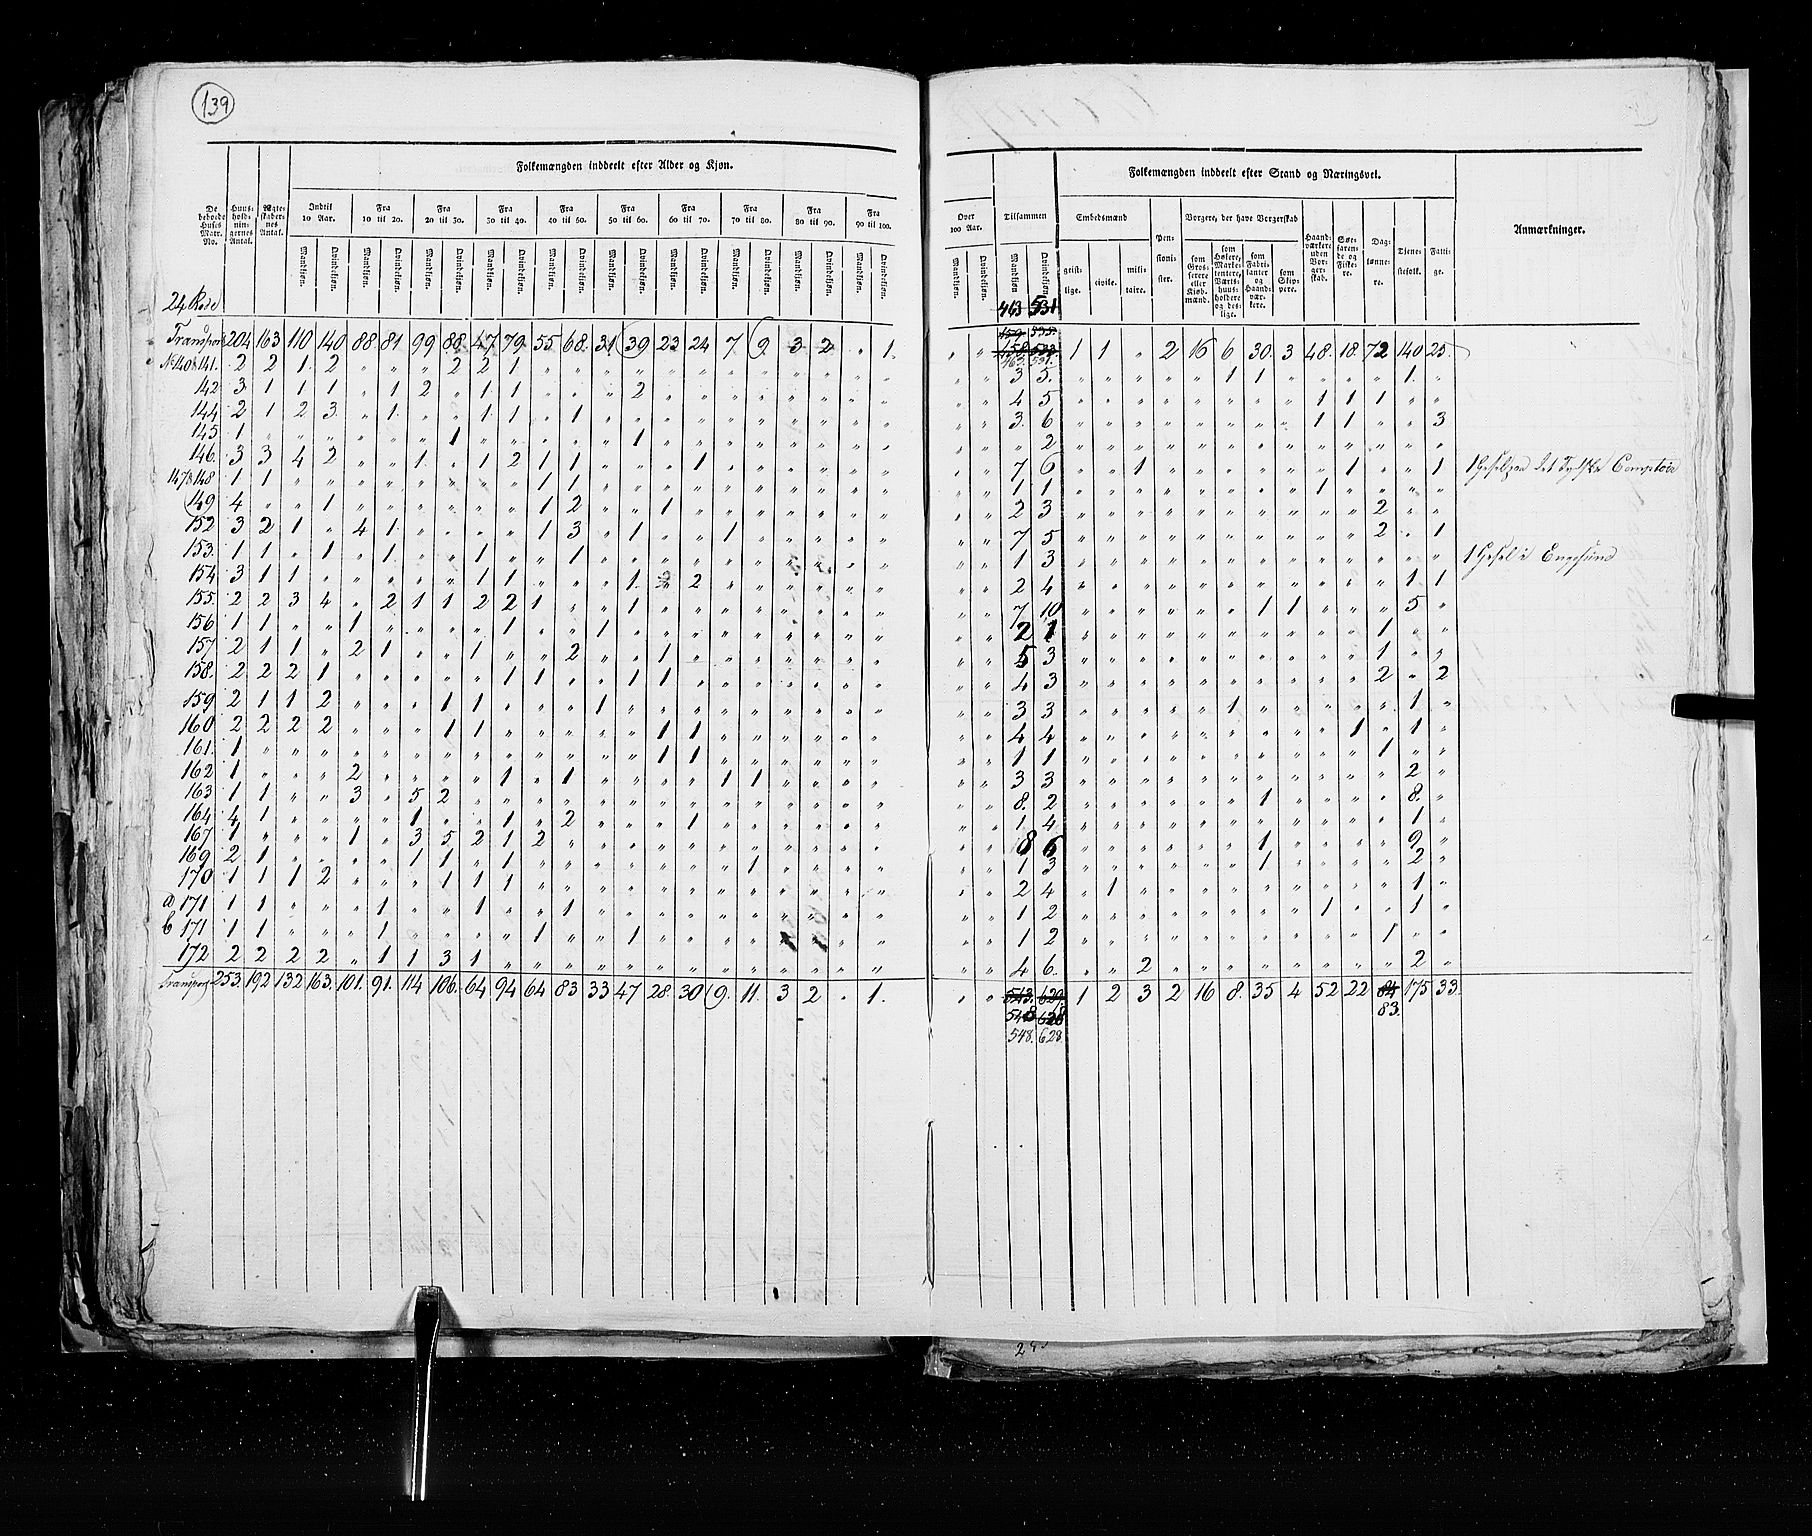 139
Folkemængden inddeelt efter Alder og Kjøn.
Folkemængden inddeelt efter Stand og Næringsvei.
De beboede Huses Matr. No. | Huusholdningernes Antal. | Ægteskabernes Antal. | Indtil 10 Aar. | Fra 10 til 20. | Fra 20 til 30. | Fra 30 til 40. | Fra 40 til 50. | Fra 50 til 60. | Fra 60 til 70. | Fra 70 til 80. | Fra 80 til 90. | Fra 90 til 100. | Over 100 Aar. | Tilsammen | Embedsmænd | Pensionister. | Borgere, der have Borgerskab | Haandværkere uden Borgerskab. | Søefarende og Fiskere. | Dagлønnere. | Tjenestefolk. | Fattige. | Anmærkninger.
Mandkjøn. Qvindekjøn. | geistlige. | civile. | militaire. | som Grosserere eller Kjøbmænd. | som Høkere, Marketentere, Værtshuusholdere og deslige. | som Fabrikanter og Haandværkere. | som Skippere.
24 Rode
463 531
Transport 204 163 110 140 88 81 99 88 47 79 55 68 31 39 23 24 7 9 3 2 „ 1. „ „ 463. 531. 1 1 „ 2 16 6 30. 3 48. 18. 72 140 25.
No 140 & 141. 2 2 1 2 „ „ „ 2 2 1 „ 3 5. 1 1 1.
142 3 1 1 1 „ 1 2 „ 1 1 „ „ „ 2 4 5 1 1 1
144 2 1 2 3. „ 1. „ „ 1. 1 „ 1 3. 6 1 1 3
145 1 „ „ „ „ „ „ 1 „ „ „ „ „ 1 „ 2
146. 3 3 4 2 „ „ 1. „ 1 2 1 1 „ „ „ 1 7 6 1 1 1
147 & 148 1 1 „ „ „ „ „ „ „ „ 1 1 1 1 1
149 4 „ „ 1 „ „ „ „ „ „ 1 2 „ „ 1 2 3 2
152 3 2 1 „ 4 1 „ „ „ „ 1 3 „ 1 „ „ 1 7 5 2 „ 1
153. 1 1 „ 1 „ 1 „ „ 1 „ „ 1 1 3
1 Gesel i Engesund
154 3 1 1 „ „ „ „ „ 1 1 „ „ „ 1. „ 2 2 4 1 1
155. 2 2 3 4 „ 2 1 1 2 2 1 „ „ 1 7 10 1 1 5
156 1 1 „ „ 1 „ „ „ „ 1 „ „ 1 2 1 1
157 2 1 1 „ 2 1 „ „ 1 „ „ 2 „ „ 1 5 3 1
158. 2 2 2 1 „ „ „ „ „ 1 1 „ „ 1 1 4 3 2 „ 2
159 2 1 1 2 „ „ „ 1 1 „ „ „ 1 3 3 1 1
160 2 2 2 2 „ „ „ 1 1 „ „ „ „ „ 1 1 4 4 1 „ 1
161. 1 „ „ „ „ „ „ „ „ „ „ „ „ „ 1 1 1 1 1
162 1 „ „ „ 2 „ „ „ „ 1 „ 1 „ „ „ „ 1 1 3 3 2
163 1 1 „ „ 3 „ 5 2 8. 2 1 8.
164 4 1 „ „ „ „ 1 „ „ 1 „ 2 „ „ „ 1 1 4 1
167 1 „ „ „ 1 „ 3 5 2 1 2 8 6 1 9
169 2 1 „ „ „ „ 1 1 „ 1 „ „ „ „ „ „ „ 1 1 3 1 2
170 1 1 1 2 „ „ „ 1 1 1 2 4 1 1
a 171 1 1 „ „ „ 1 „ „ 1 „ „ 1 1 2 1 1
b 171 1 1 „ „ „ 1 „ „ „ „ 1 „ „ 1 1 2 1
172 2 2 2 2 „ 1 1 3 1 4 6. 2 2
Transport 253. 192 132 163. 101. 91. 114 106. 64 94 64 83 33 47 28. 30 9. 11. 3 2 „ 1. „ „ 543. 629. 1 2 3 2 16 8. 35 4 52 22 84 175 33.
548 628 83.
548. 628.